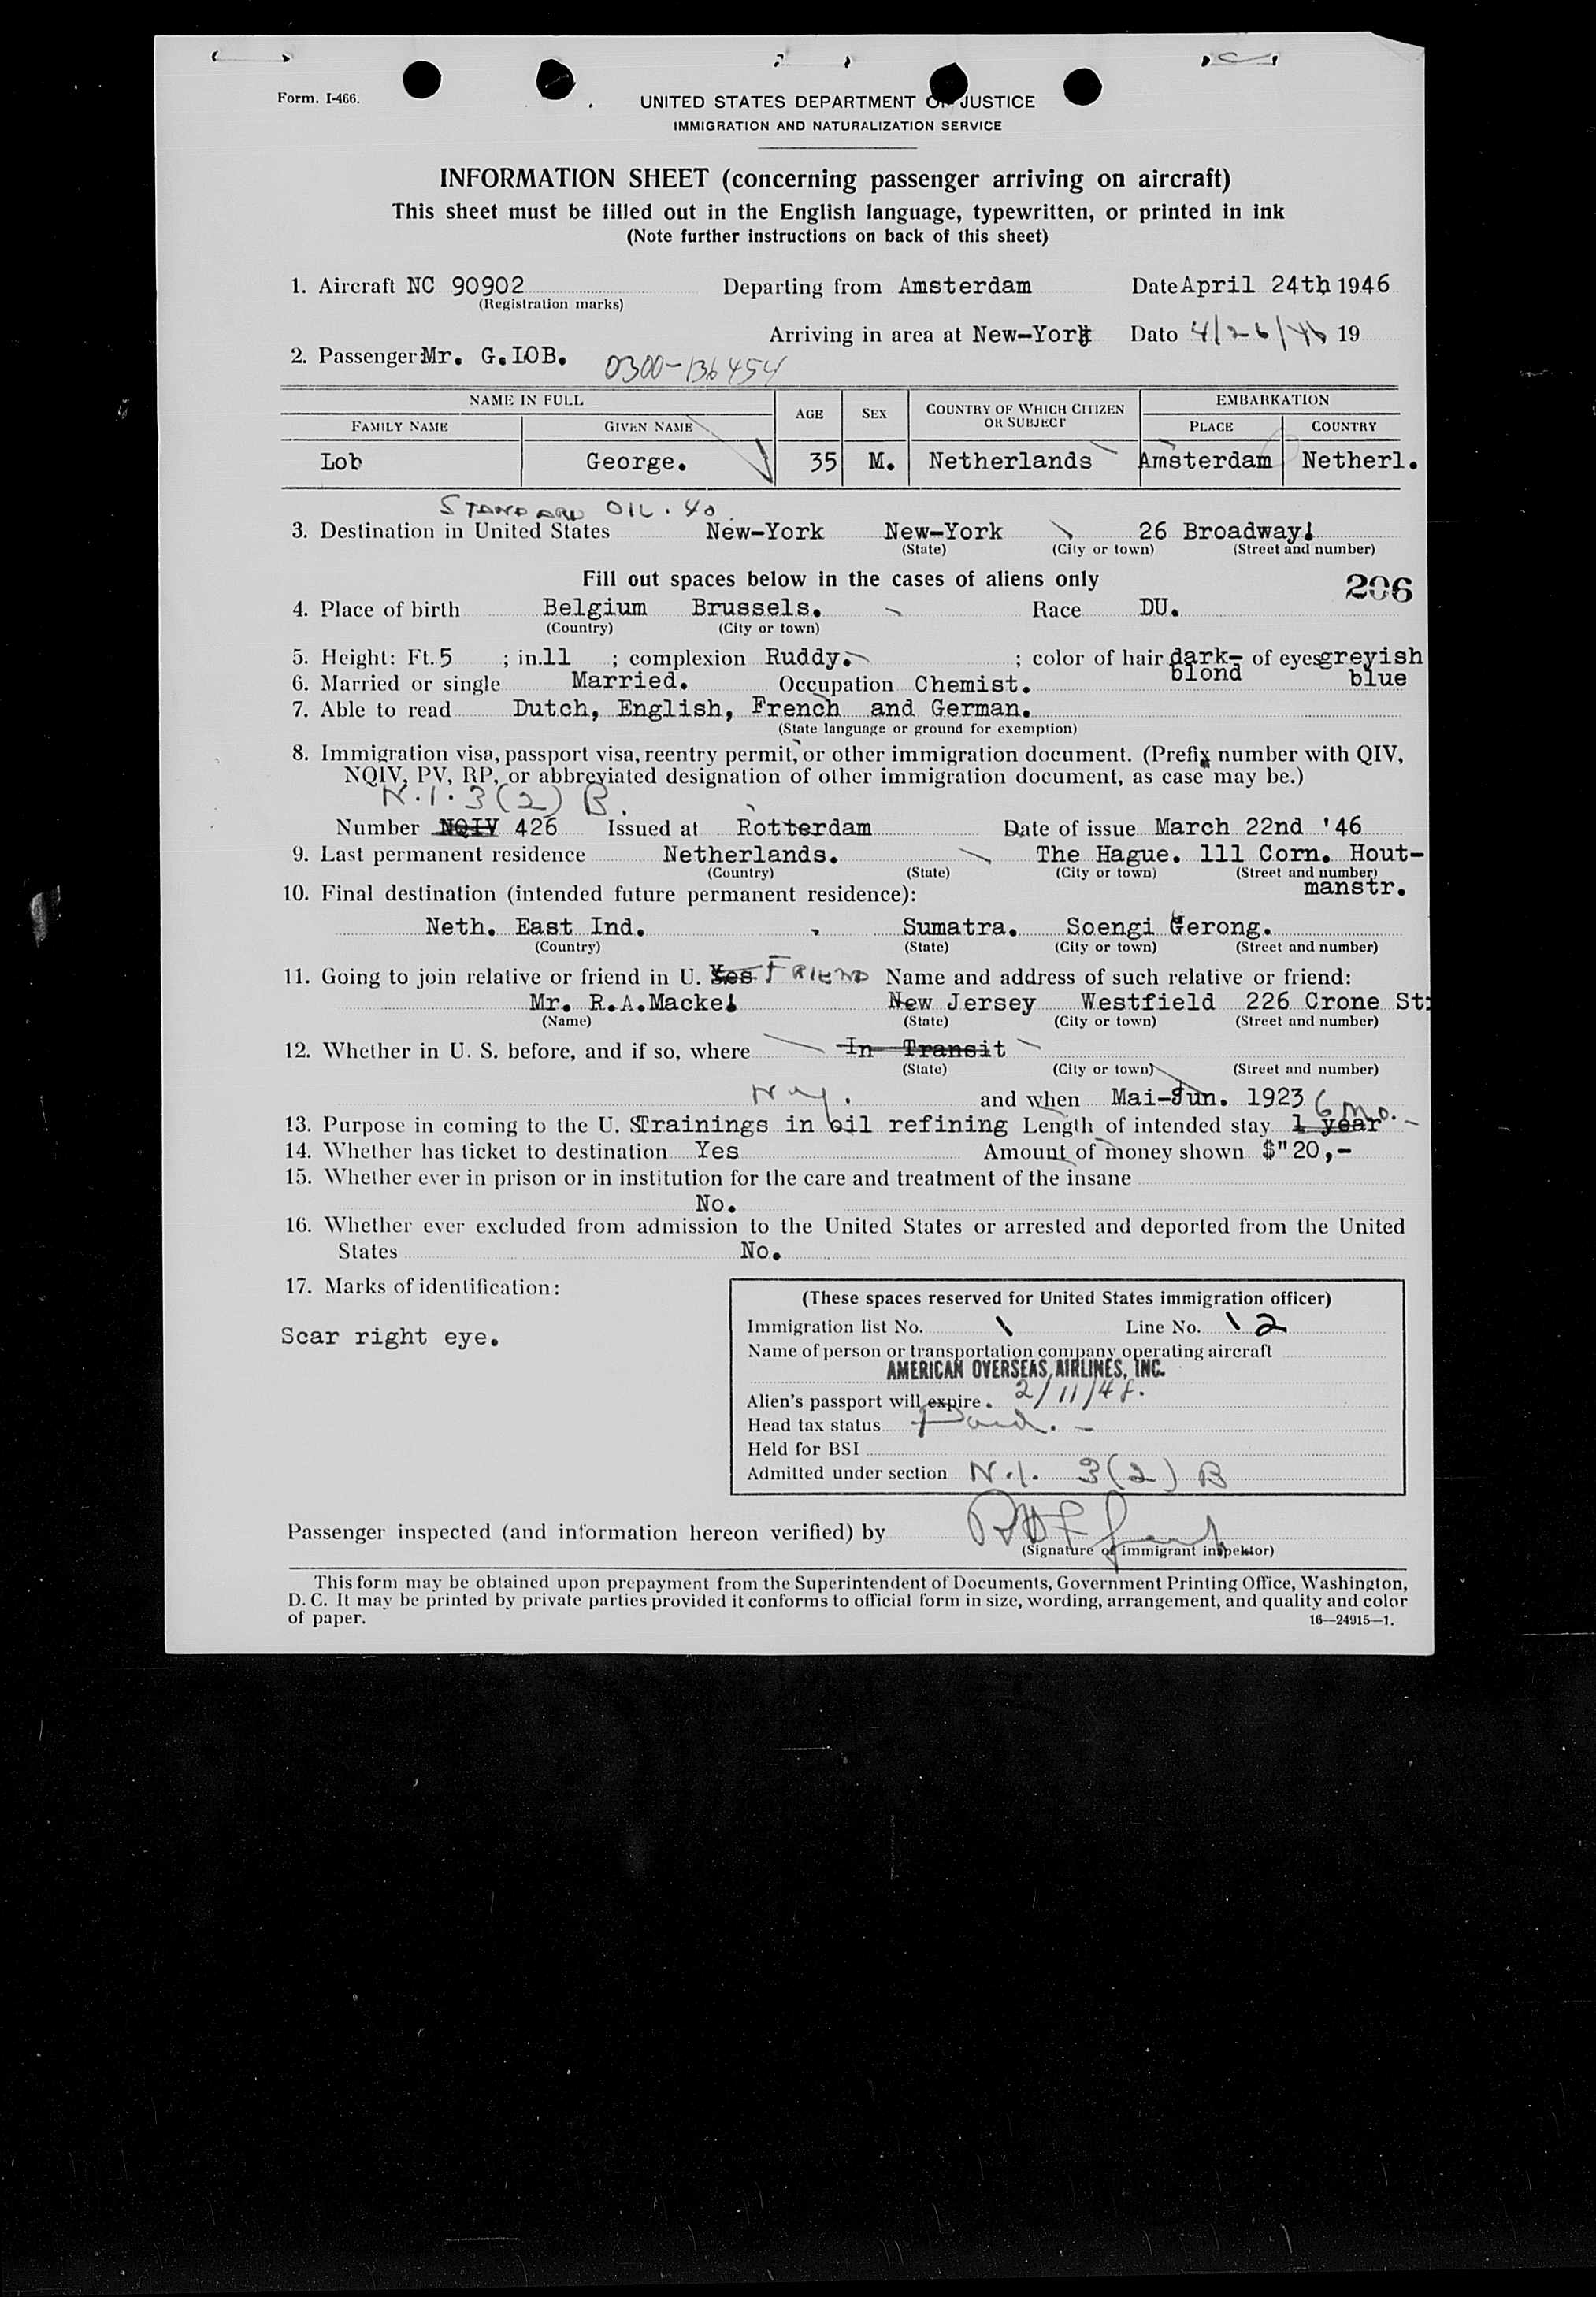 Form. I-466.
UNITED STATES DEPARTMENT OF JUSTICE
IMMIGRATION AND NATURALIZATION SERVICE
INFORMATION SHEET (concerning passenger arriving on aircraft)
This sheet must be filled out in the English language, typewritten, or printed in ink
(Note further instructions on back of this sheet)
1. Aircraft NC 90902 Departing from Amsterdam Date April 24th 1946
(Registration marks)
Arriving in area at New-York Date 4/26/46 19
2. Passenger Mr. G.LOB. 0300-136454
NAME IN FULL AGE SEX COUNTRY OF WHICH CITIZEN OR SUBJECT EMBARKATION
FAMILY NAME GIVEN NAME PLACE COUNTRY
Lob George. 35 M. Netherlands Amsterdam Netherl.
STANDARD OIL.
3. Destination in United States New-York New-York 26 Broadway.
(State) (City or town) (Street and number)
Fill out spaces below in the cases of aliens only
206
4. Place of birth Belgium Brussels. Race DU.
(Country) (City or town)
5. Height: Ft. 5 ; in. 11 ; complexion Ruddy. ; color of hair dark- of eyes greyish
blond blue
6. Married or single Married. Occupation Chemist.
7. Able to read Dutch, English, French and German.
(State language or ground for exemption)
8. Immigration visa, passport visa, reentry permit, or other immigration document. (Prefix number with QIV,
NQIV, PV, RP, or abbreviated designation of other immigration document, as case may be.)
N.I. 3(2) B.
Number NQIV 426 Issued at Rotterdam Date of issue March 22nd '46
9. Last permanent residence Netherlands. The Hague. 111 Corn. Hout-
(Country) (State) (City or town) (Street and number)
manstr.
10. Final destination (intended future permanent residence):
Neth. East Ind. Sumatra. Soengi Gerong.
(Country) (State) (City or town) (Street and number)
11. Going to join relative or friend in U. Yes FRIEND Name and address of such relative or friend:
Mr. R.A.Macke. New Jersey Westfield 226 Crone St:
(Name) (State) (City or town) (Street and number)
12. Whether in U. S. before, and if so, where In Transit
(State) (City or town) (Street and number)
N.Y. and when Mai-Jun. 1923
6 Mo.
13. Purpose in coming to the U. S. Trainings in oil refining Length of intended stay 1 year
14. Whether has ticket to destination Yes Amount of money shown $"20,-
15. Whether ever in prison or in institution for the care and treatment of the insane
No.
16. Whether ever excluded from admission to the United States or arrested and deported from the United
States No.
17. Marks of identification:
Scar right eye.
(These spaces reserved for United States immigration officer)
Immigration list No. 1 Line No. 12
Name of person or transportation company operating aircraft
AMERICAN OVERSEAS AIRLINES, INC.
Alien's passport will expire 2/11/48.
Head tax status Paid.
Held for BSI
Admitted under section N.I. 3(2) B
Passenger inspected (and information hereon verified) by
(Signature of immigrant inspektor)
This form may be obtained upon prepayment from the Superintendent of Documents, Government Printing Office, Washington,
D. C. It may be printed by private parties provided it conforms to official form in size, wording, arrangement, and quality and color
of paper. 16—24915—1.